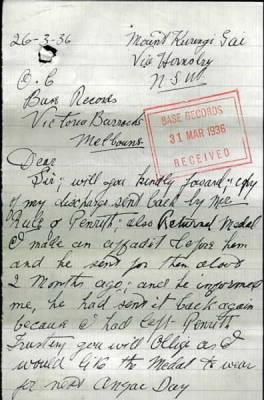 26-3-36
Mount Kuringi Gai
Via Hornsby
N.S.W.
O.C
Base Records
Victoria Barracks
Melbourne
BASE RECORDS
31 MAR 1936
RECEIVED
Dear
Sir; will you kindly forward copy
of my discharge sent back by Mr
Rule of Penrith; also Returned Medal
I made an affadit before him
and he sent for them about
2 Months ago; and he informed
me, he had sent it back again
because I had left Penrith
Trusting you will Oblige as I
would like the Medal to wear
for next Angac Day